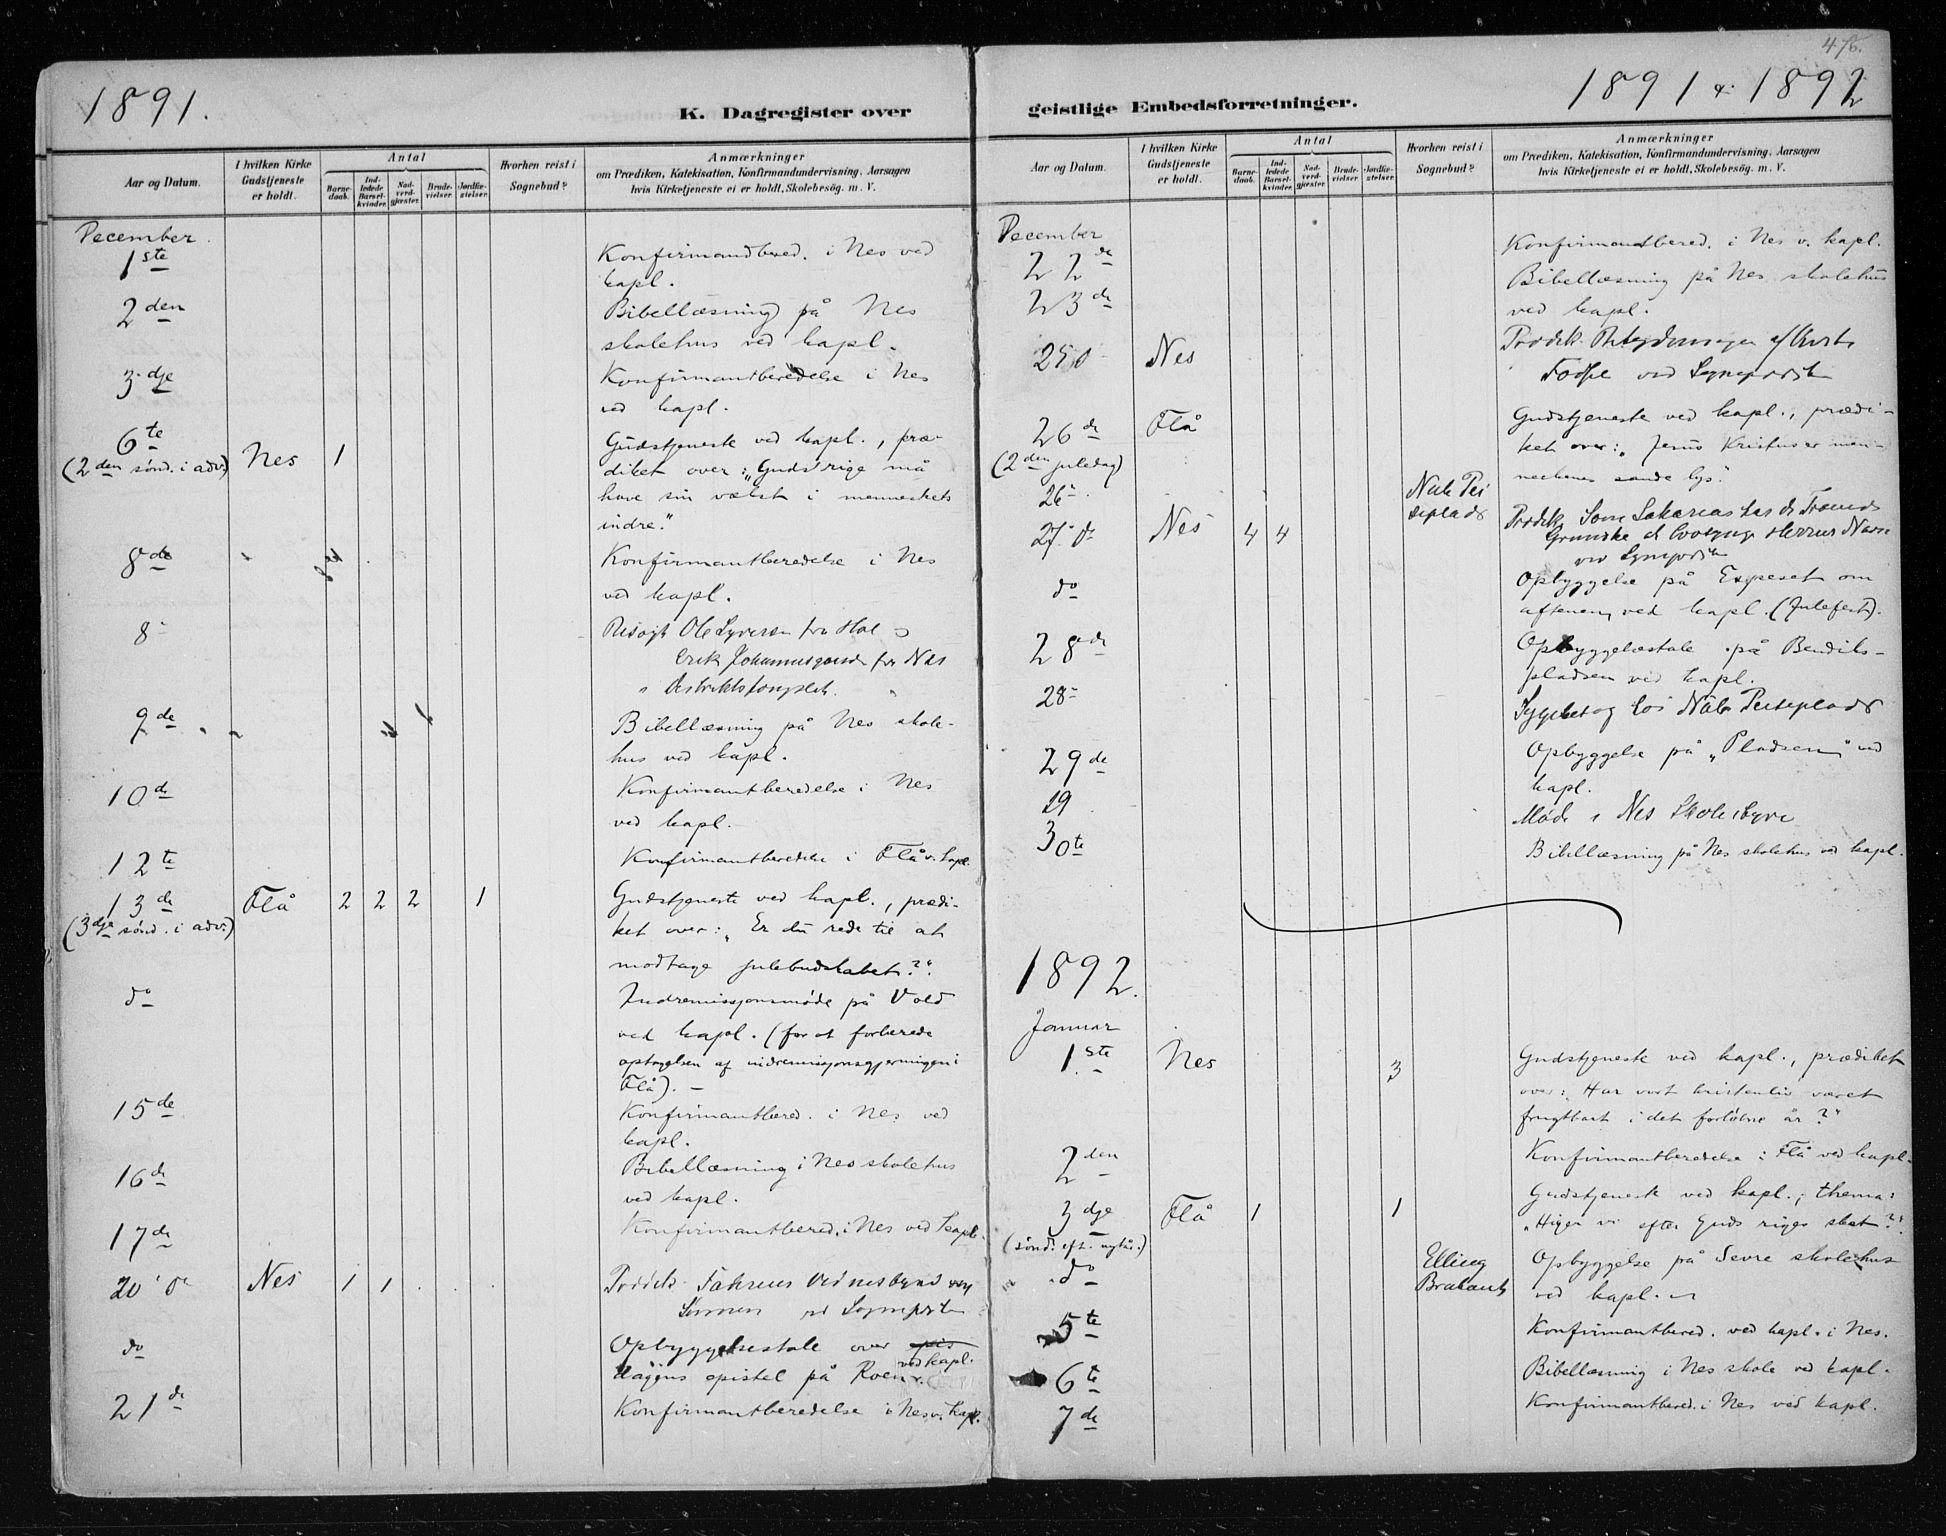 1891.
K. Dagregister over
Aar og Datum.
I hvilken Kirke Gudstjeneste er holdt.
Antal
Barnedaab.
Indledede Barselkvinder.
Nadverdgjæster.
Brudevielser.
Jordfæstelser.
Hvorhen reist i Sognebud?
Anmærkninger
om Prædiken, Katekisation, Konfirmandundervisning, Aarsagen
hvis Kirketjeneste ei er holdt, Skolebesög. m. V.
December.
1ste Konfirmandbered. i Nes ved
kapl.
2den Bibellæsning på Nes
skolehus ved kapl.
3dje Konfirmantberedelse i Nes
ved kapl.
6te Nes 1 Gudstjeneste ved kapl., præ-
(2den sönd. i adv.) diket over: "Guds rige må
have sin vækst i menneskets
indre."
8de Konfirmantberedelse i Nes
ved kapl.
8 Besögt Ole Syversen fra Hol
Erik Johannesgaard fra Nes
i Distriktsfængslet.
9de Bibellæsning på Nes skole-
hus ved kapl.
10de Konfirmantberedelse i Nes
ved kapl.
12te Konfirmantberedelse i Flå v. kapl.
13de Flå 2 2 2 1 Gudstjeneste ved kapl., prædi-
(3dje sönd. i adv.) ket over: "Er du rede til at
modtage julebudskabet?".
do Indremissjonsmöde på Vold
ved kapl. (for at forberede
optagelsen af indremissjonsgjerningen i
Flå). –
15de Konfirmantbered. i Nes ved
kapl.
16de Bibellæsning i Nes skolehus
ved kapl.
17de Konfirmantbered. i Nes ved kapl.
20de Nes 1 1 Prædik. Vidnesbyrd
ved Sognepræsten
do Opbyggelsestale over
dagens epistel på Roen ved kapl.
21de Konfirmantberedelse i Nes v. kapl.
476.
1891 & 1892
geistlige Embedsforretninger.
Aar og Datum.
I hvilken Kirke Gudstjeneste er holdt.
Antal
Barnedaab.
Indledede Barselkvinder.
Nadverdgjæster.
Brudevielser.
Jordfæstelser.
Hvorhen reist i Sognebud?
Anmærkninger
om Prædiken, Katekisation, Konfirmandundervisning, Aarsagen
hvis Kirketjeneste ei er holdt, Skolebesög. m. V.
December
22de Konfirmantbered. i Nes v. kapl.
23de Bibellæsning på Nes skolehus
ved kapl.
25d Nes Prædik. Betydningen af Christi
Födsel ved Sognepræsten
26de Flå Gudstjeneste ved kapl., prædi-
(2den juledag) ket over: "Jesus Kristus er men-
neskenes sande lys."
26
27de Nes 4 4 Prædik.
Herrens Navn
ved Sognepræsten
do Opbyggelse på Espeset om
aftenen, ved kapl. (Julefest).
28de Opbyggelsestale på Bendiks-
pladsen ved kapl.
28 Sygebesög hos
29de Opbyggelse på "Pladsen" ved
kapl.
29 Möde i Nes Skolestyre
30te Bibellæsning på Nes skolehus ved kapl.
1892.
Januar
1ste Nes 3 Gudstjeneste ved kapl., prædiket
over: "Har vort kristenliv været
frugtbart i det forlöbne år?"
2den Konfirmantberedelse i Flå ved kapl.
3dje Flå 1 1 Gudstjeneste ved kapl.; thema:
(sönd. eft. nytår.) "Higer vi efter Guds riges skat?"
do Elling Opbyggelse på Sevre skolehus
ved kapl.
5te Konfirmantbered. ved kapl. i Nes.
6te Bibellæsning i Nes skole ved kapl.
7de Konfirmantbered. i Nes ved kapl.